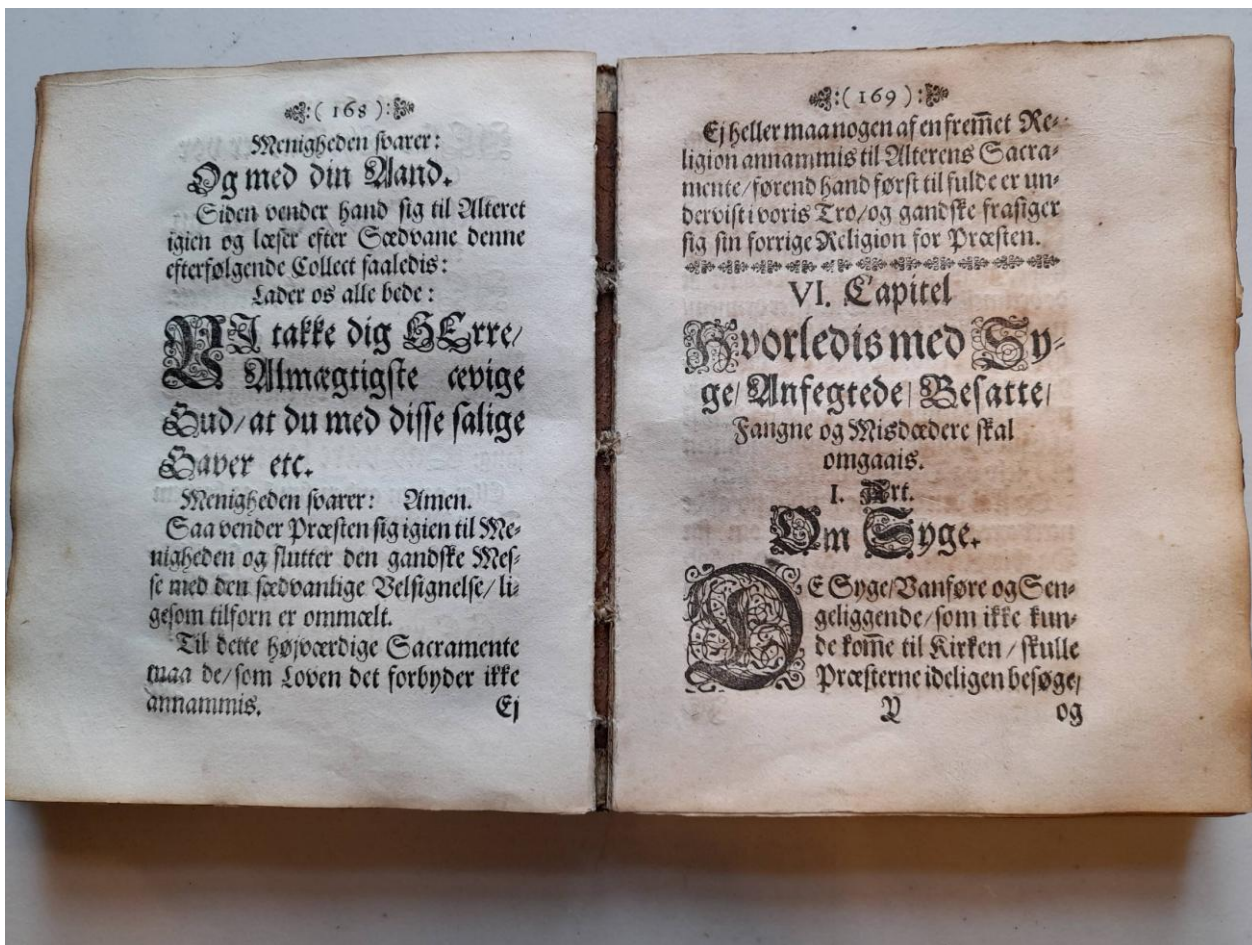 :( 168 ):
Menigheden svarer:
Og med din Aand.
Siden vender hand sig til Alteret
igien og læser efter Sædvane denne
efterfølgende Collect saaledis:
Lader os alle bede:
VI takke dig HErre/
Almægtigste ævige
Gud/ at du med disse salige
Gaver etc.
Menigheden svarer: Amen.
Saa vender Præsten sig igien til Me-
nigheden og slutter den gandske Mes-
se med den sædvanlige Velsignelse/ li-
gesom tilforn er ommælt.
Til dette højværdige Sacramente
maa de/ som Loven det forbyder ikke
annammis.
Ej
:( 169 ):
Ej heller maa nogen af en frem̅et Re-
ligion annammis til Alterens Sacra-
mente/ førend hand først til fulde er un-
dervist i voris Tro/ og gandske frasiger
sig sin forrige Religion for Præsten.
VI. Capitel
Hvorledis med Sy-
ge/ Anfegtede/ Besatte/
Fangne og Misdædere skal
omgaais.
I. Art.
Om Syge.
DE Syge/ Vanføre og Sen-
geliggende/ som ikke kun-
de kom̅e til Kirken/ skulle
Præsterne ideligen besøge/
Y og